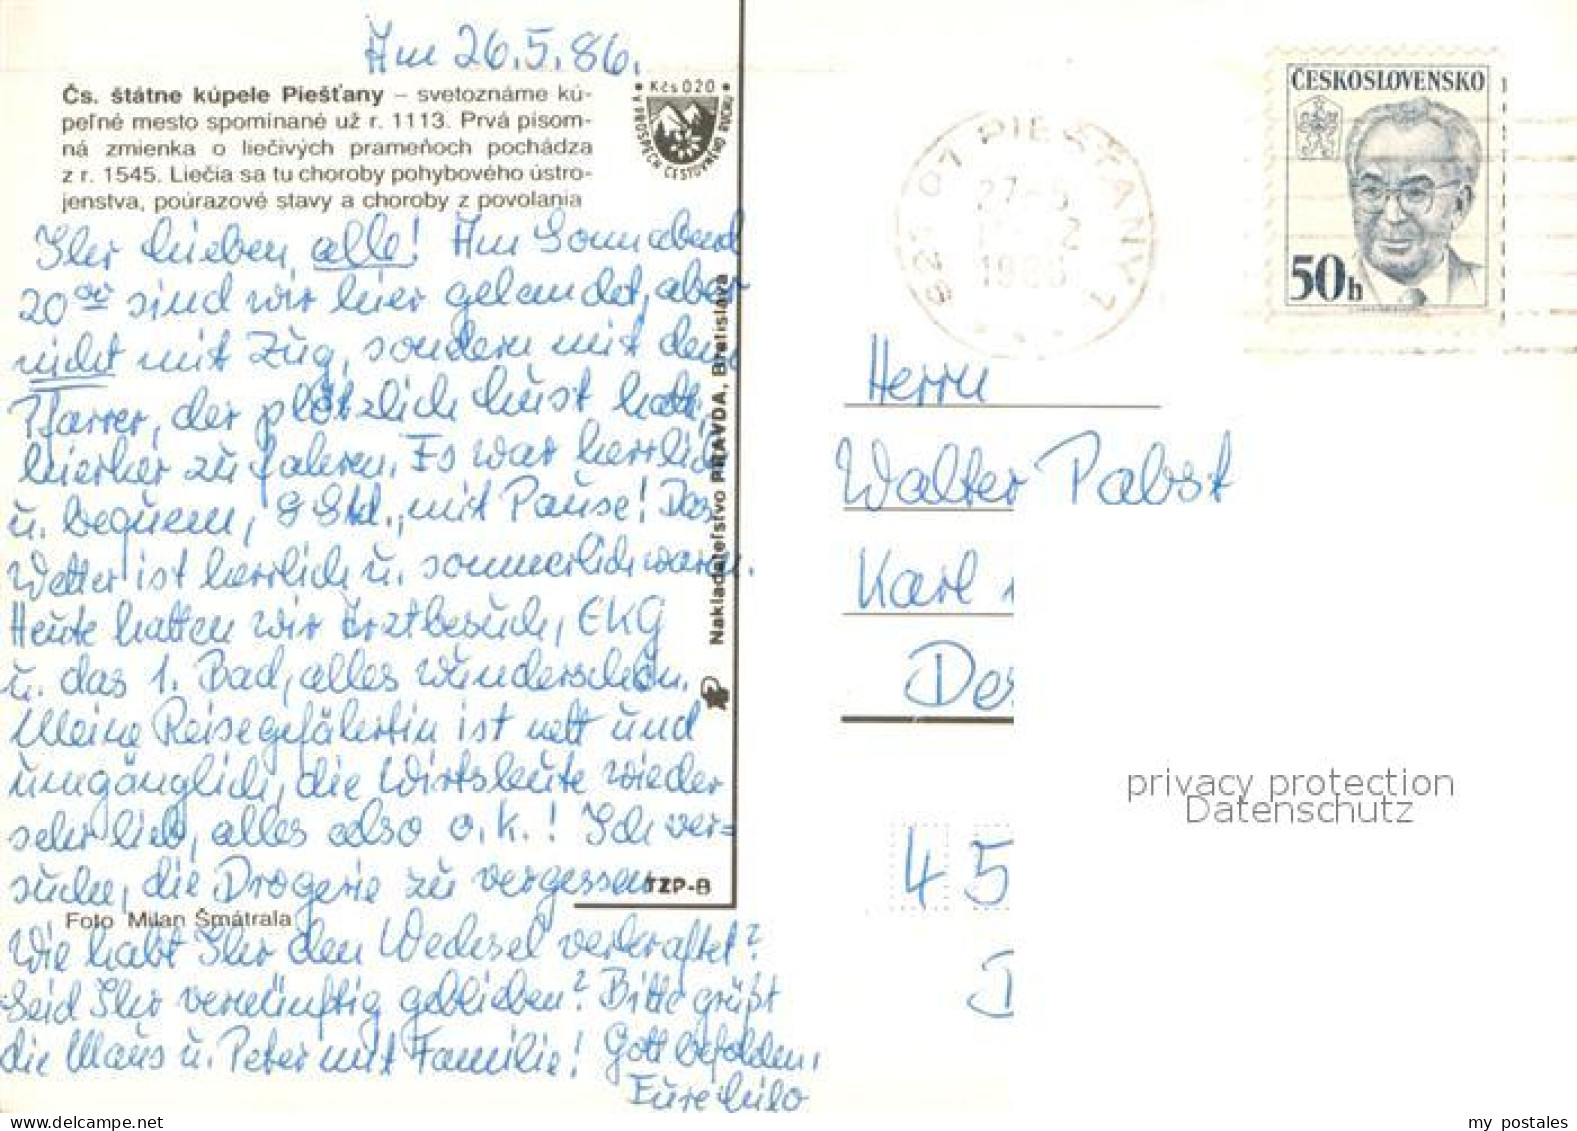 Am 26.5.86.
Čs. štátne kúpele Piešťany – svetoznáme kú-
peľné mesto spomínané už r. 1113. Prvá písom-
ná zmienka o liečivých prameňoch pochádza
z r. 1545. Liečia sa tu choroby pohybového ústro-
jenstva, poúrazové stavy a choroby z povolania
Kčs 020
V PROSPECH CESTOVNÉHO RUCHU
Ihr lieben alle! Am Sonnabend
20⁰⁰ sind wir hier gelandet, aber
nicht mit Zug, sondern mit dem
Pfarrer, der plötzlich Lust hatte,
hierher zu fahren. Es war herrlich
u. bequem, 8 Std., mit Pause! Das
Wetter ist herrlich u. sommerlich warm.
Heute hatten wir Arztbesuch, EKG
u. das 1. Bad, alles wunderschön.
Meine Reisegefährtin ist nett und
umgänglich, die Wirtsleute wieder
sehr lieb, alles also o.k.! Ich ver=
suche, die Drogerie zu vergessen
Wie habt Ihr den Wechsel verkraftet?
Seid Ihr vernünftig geblieben? Bitte grüßt
die Maus u. Peter mit Familie! Gott befohlen,
Eure Lilo
Foto Milan Šmátrala
TZP-B
Nakladateľstvo PRAVDA, Bratislava
921 01 PIEŠŤANY 1
27-5
1986
ČESKOSLOVENSKO
50h
Herrn
Walter Pabst
Karl
Des
45
privacy protection
Datenschutz
my postales